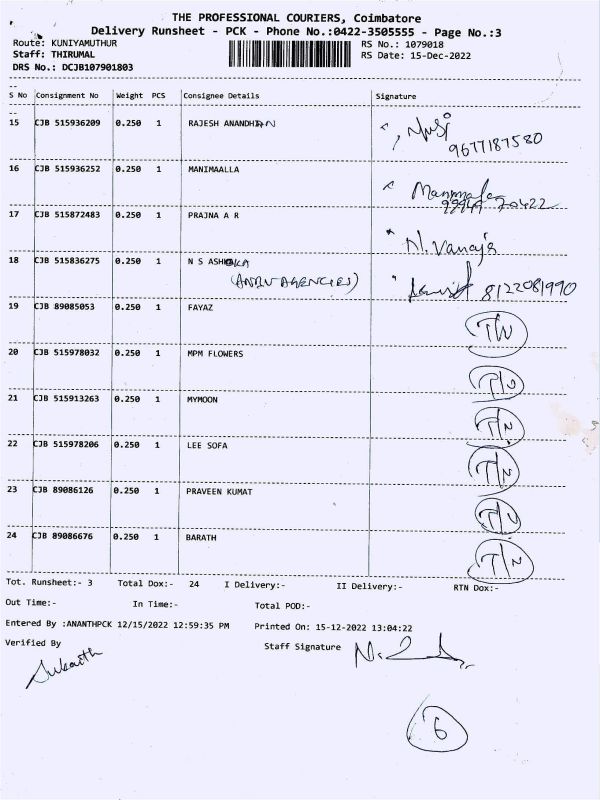 THE PROFESSIONAL COURIERS, Coimbatore
Delivery Runsheet - PCK - Phone No.:0422-3505555 - Page No.:3
Route: KUNIYAMUTHUR RS No.: 1079018
Staff: THIRUMAL RS Date: 15-Dec-2022
DRS No.: DCJB107901803
S No Consignment No Weight PCS Consignee Details Signature
15 CJB 515936209 0.250 1 RAJESH ANANDHAN
9677187580
16 CJB 515936252 0.250 1 MANIMAALLA
17 CJB 515872483 0.250 1 PRAJNA A R
N. Vanaja
18 CJB 515836275 0.250 1 N S ASHOKA
(ANBU AGENCIES) 8122081990
19 CJB 89085053 0.250 1 FAYAZ
20 CJB 515978032 0.250 1 MPM FLOWERS
21 CJB 515913263 0.250 1 MYMOON
22 CJB 515978206 0.250 1 LEE SOFA
23 CJB 89086126 0.250 1 PRAVEEN KUMAT
24 CJB 89086676 0.250 1 BARATH
Tot. Runsheet:- 3 Total Dox:- 24 I Delivery:- II Delivery:- RTN Dox:-
Out Time:- In Time:- Total POD:-
Entered By :ANANTHPCK 12/15/2022 12:59:35 PM Printed On: 15-12-2022 13:04:22
Verified By Staff Signature
6